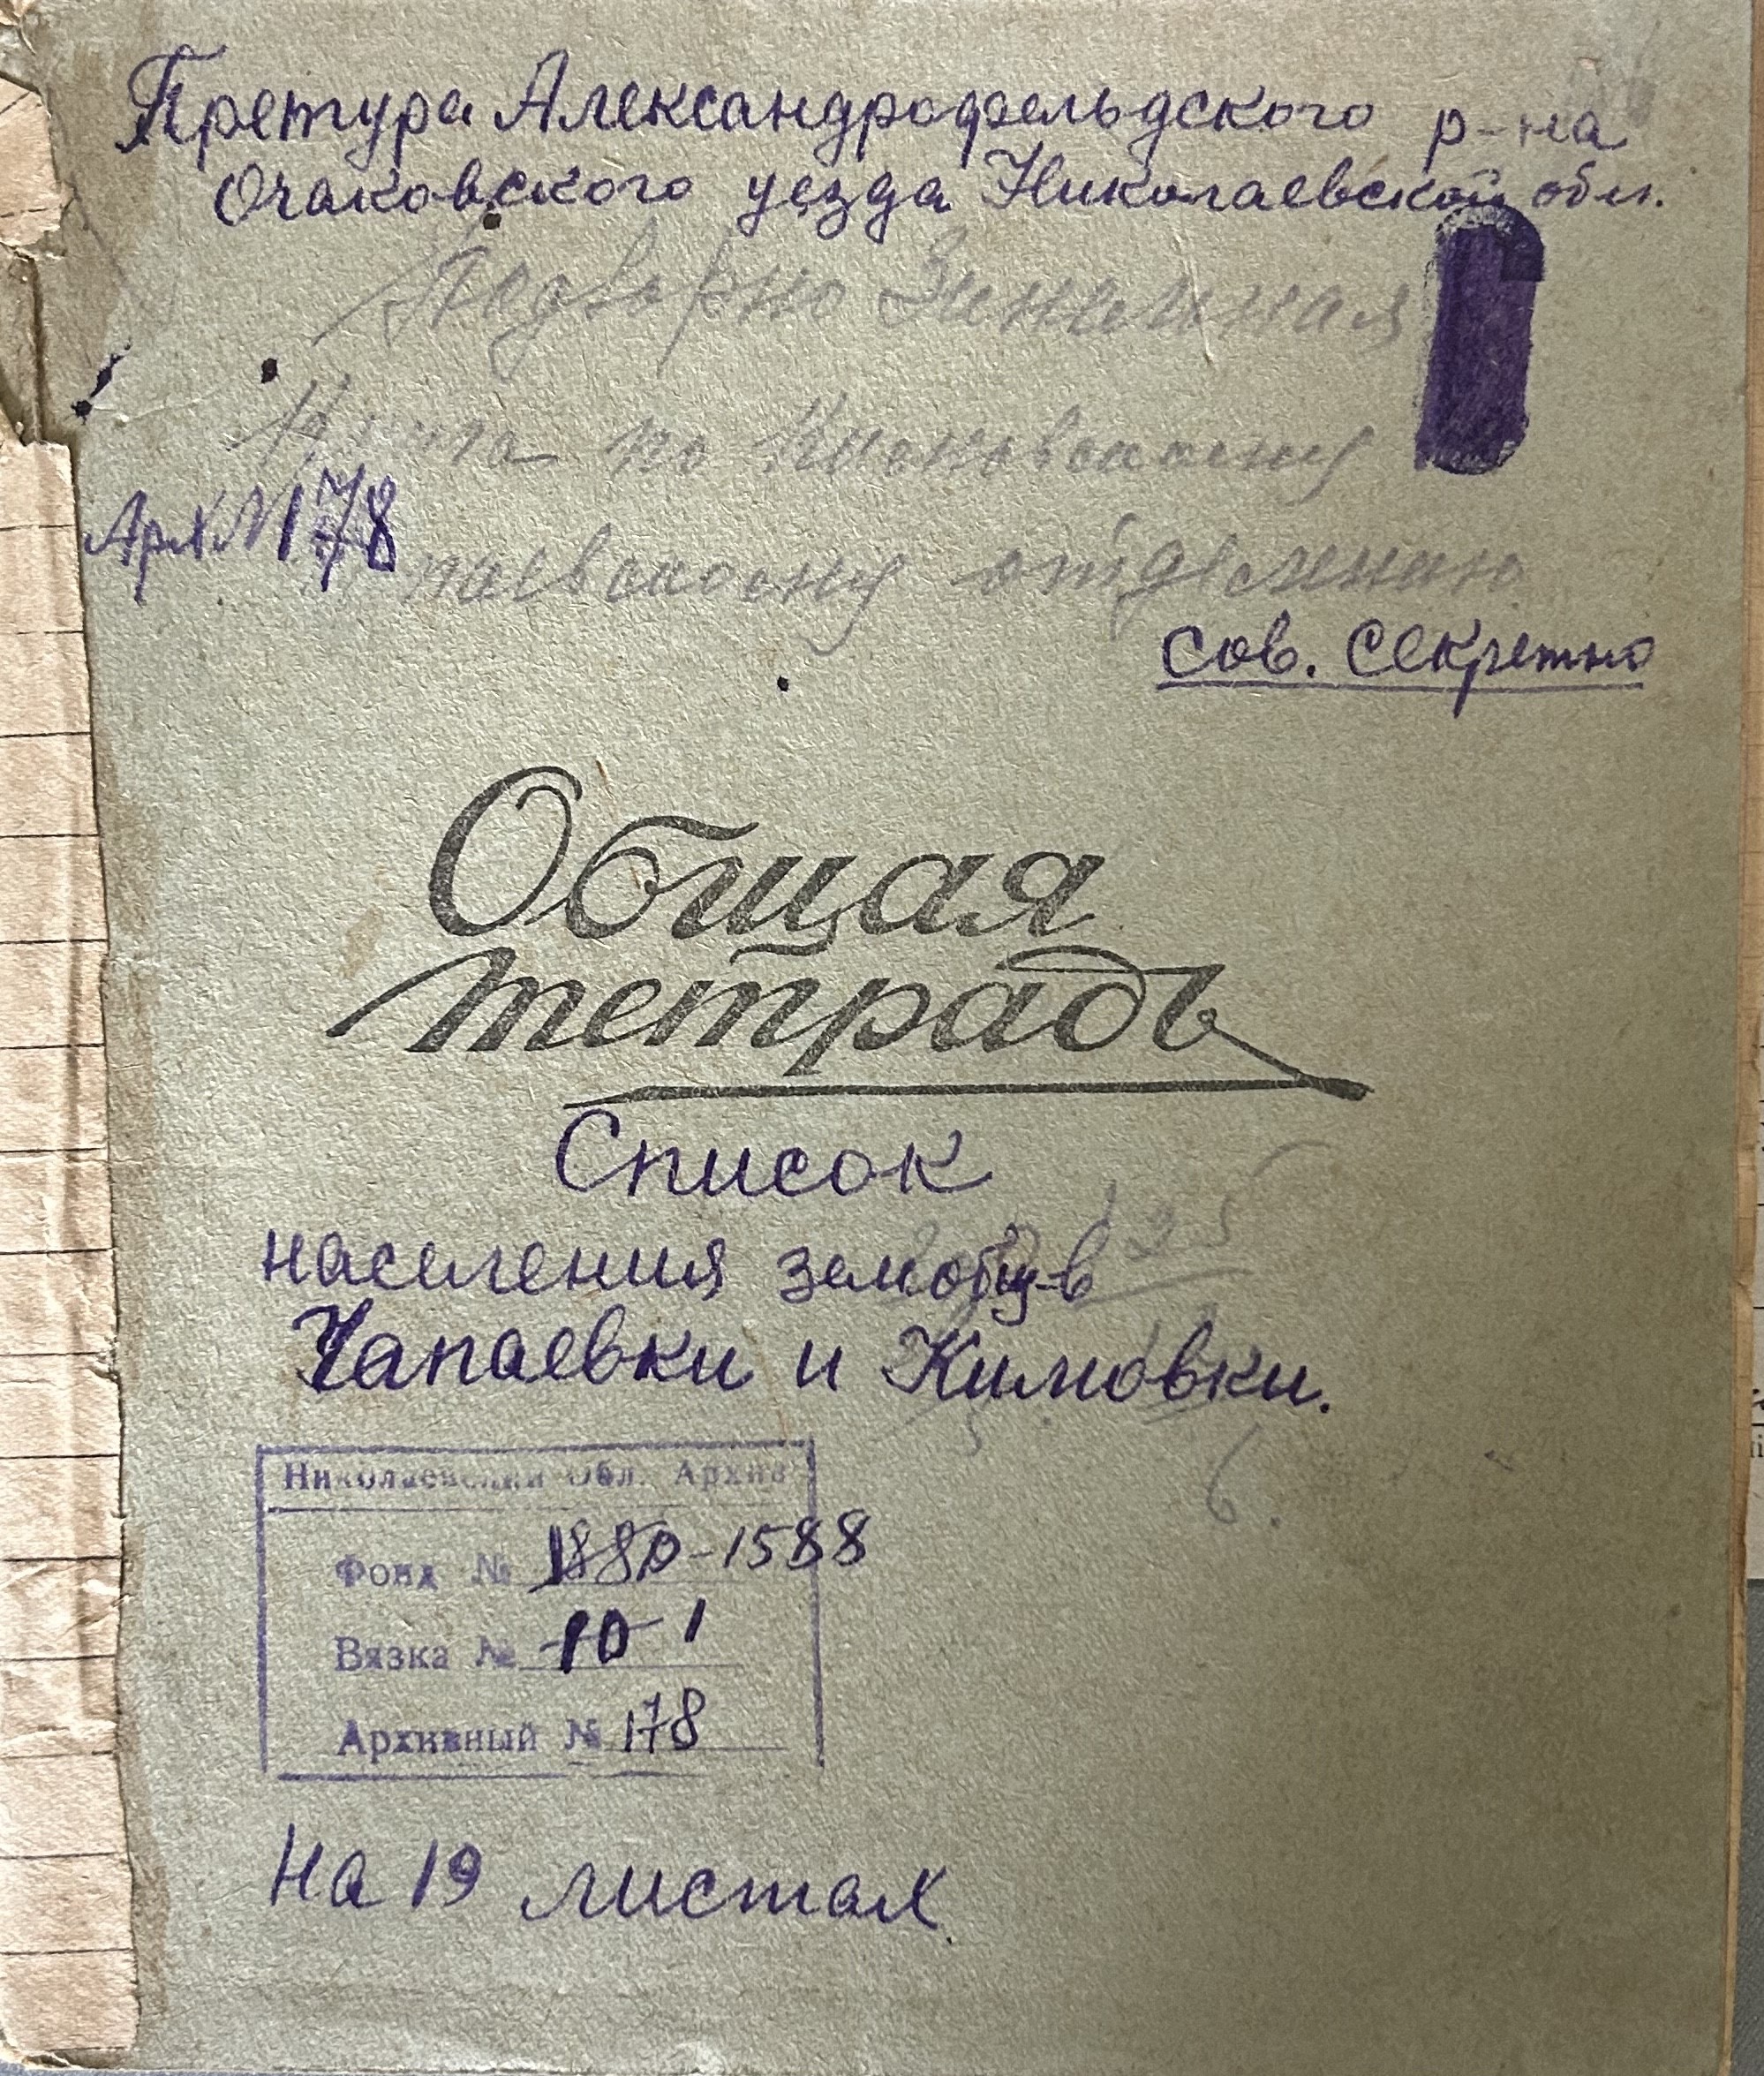 Претура Александрофельдского р-на
Очаковского уезда Николаевской обл.
Подворно
книга по
Арх N 178
отделению
сов. секретно
Общая
тетрадь
Список
населения земобщ-в
Чапаевки и Кимовки.
6.
Николаевский Обл. Архив
Фонд № 1880-1588
Вязка № 10 1
Архивный № 178
На 19 листах